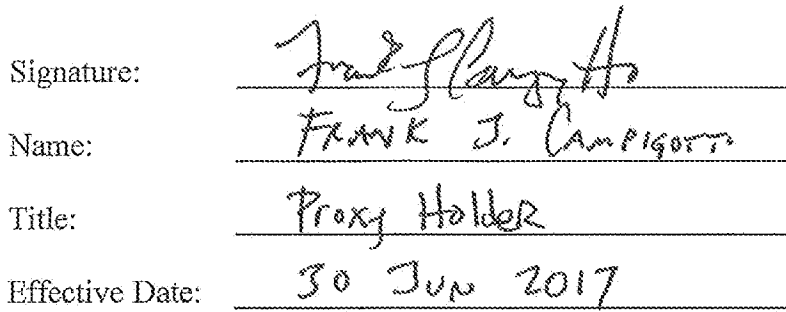 Signature: Frank J Campigotto
Name: FRANK J. CAMPIGOTTO
Title: Proxy Holder
Effective Date: 30 JUN 2017